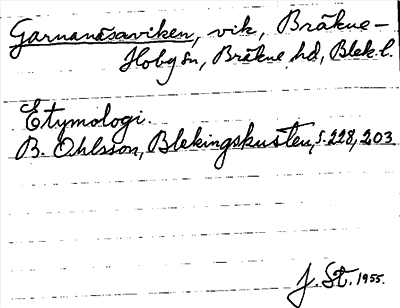 Garnanäsaviken, vik, Bräkne-
Hoby sn, Bräkne hd, Blek. l.
Etymologi.
B. Ohlsson, Blekingskusten, s. 228, 203
J. St. 1955.